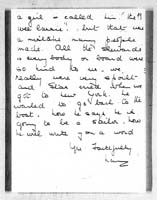 a girl & called him "the
". but that was
a mistake many people
made. All the stewards
& every body on board were
so kind to us. we
really were very spoilt
and Stan cried when we
got to New York. he
wanted to go back to the
boat. now he says he is
going to be a sailor. now
he will write you a word
Yrs faithfully